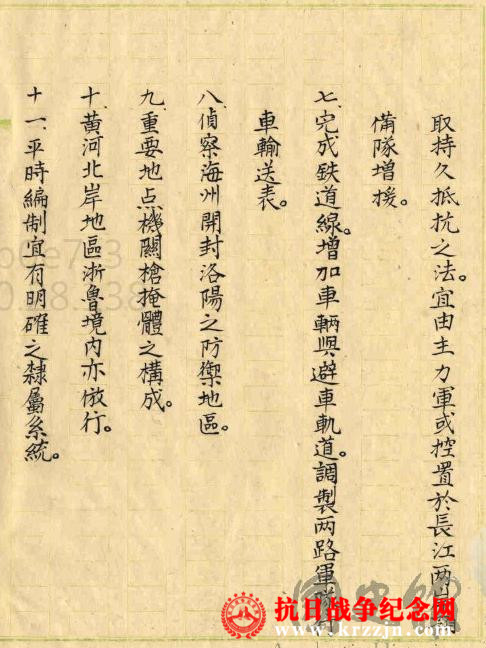 取持久抵抗之法。宜由主力軍或控置於長江两岸
備隊增援。
七、完成鉄道線。增加車輛與避車軌道。調製两路軍隊
車輸送表。
八、偵察海州開封洛陽之防禦地區。
九、重要地点機關槍掩體之構成。
十、黃河北岸地區浙魯境内亦倣行。
十一、平時編制宜有明確之隸屬系統。
抗日战争纪念网
www.krzzjn.com